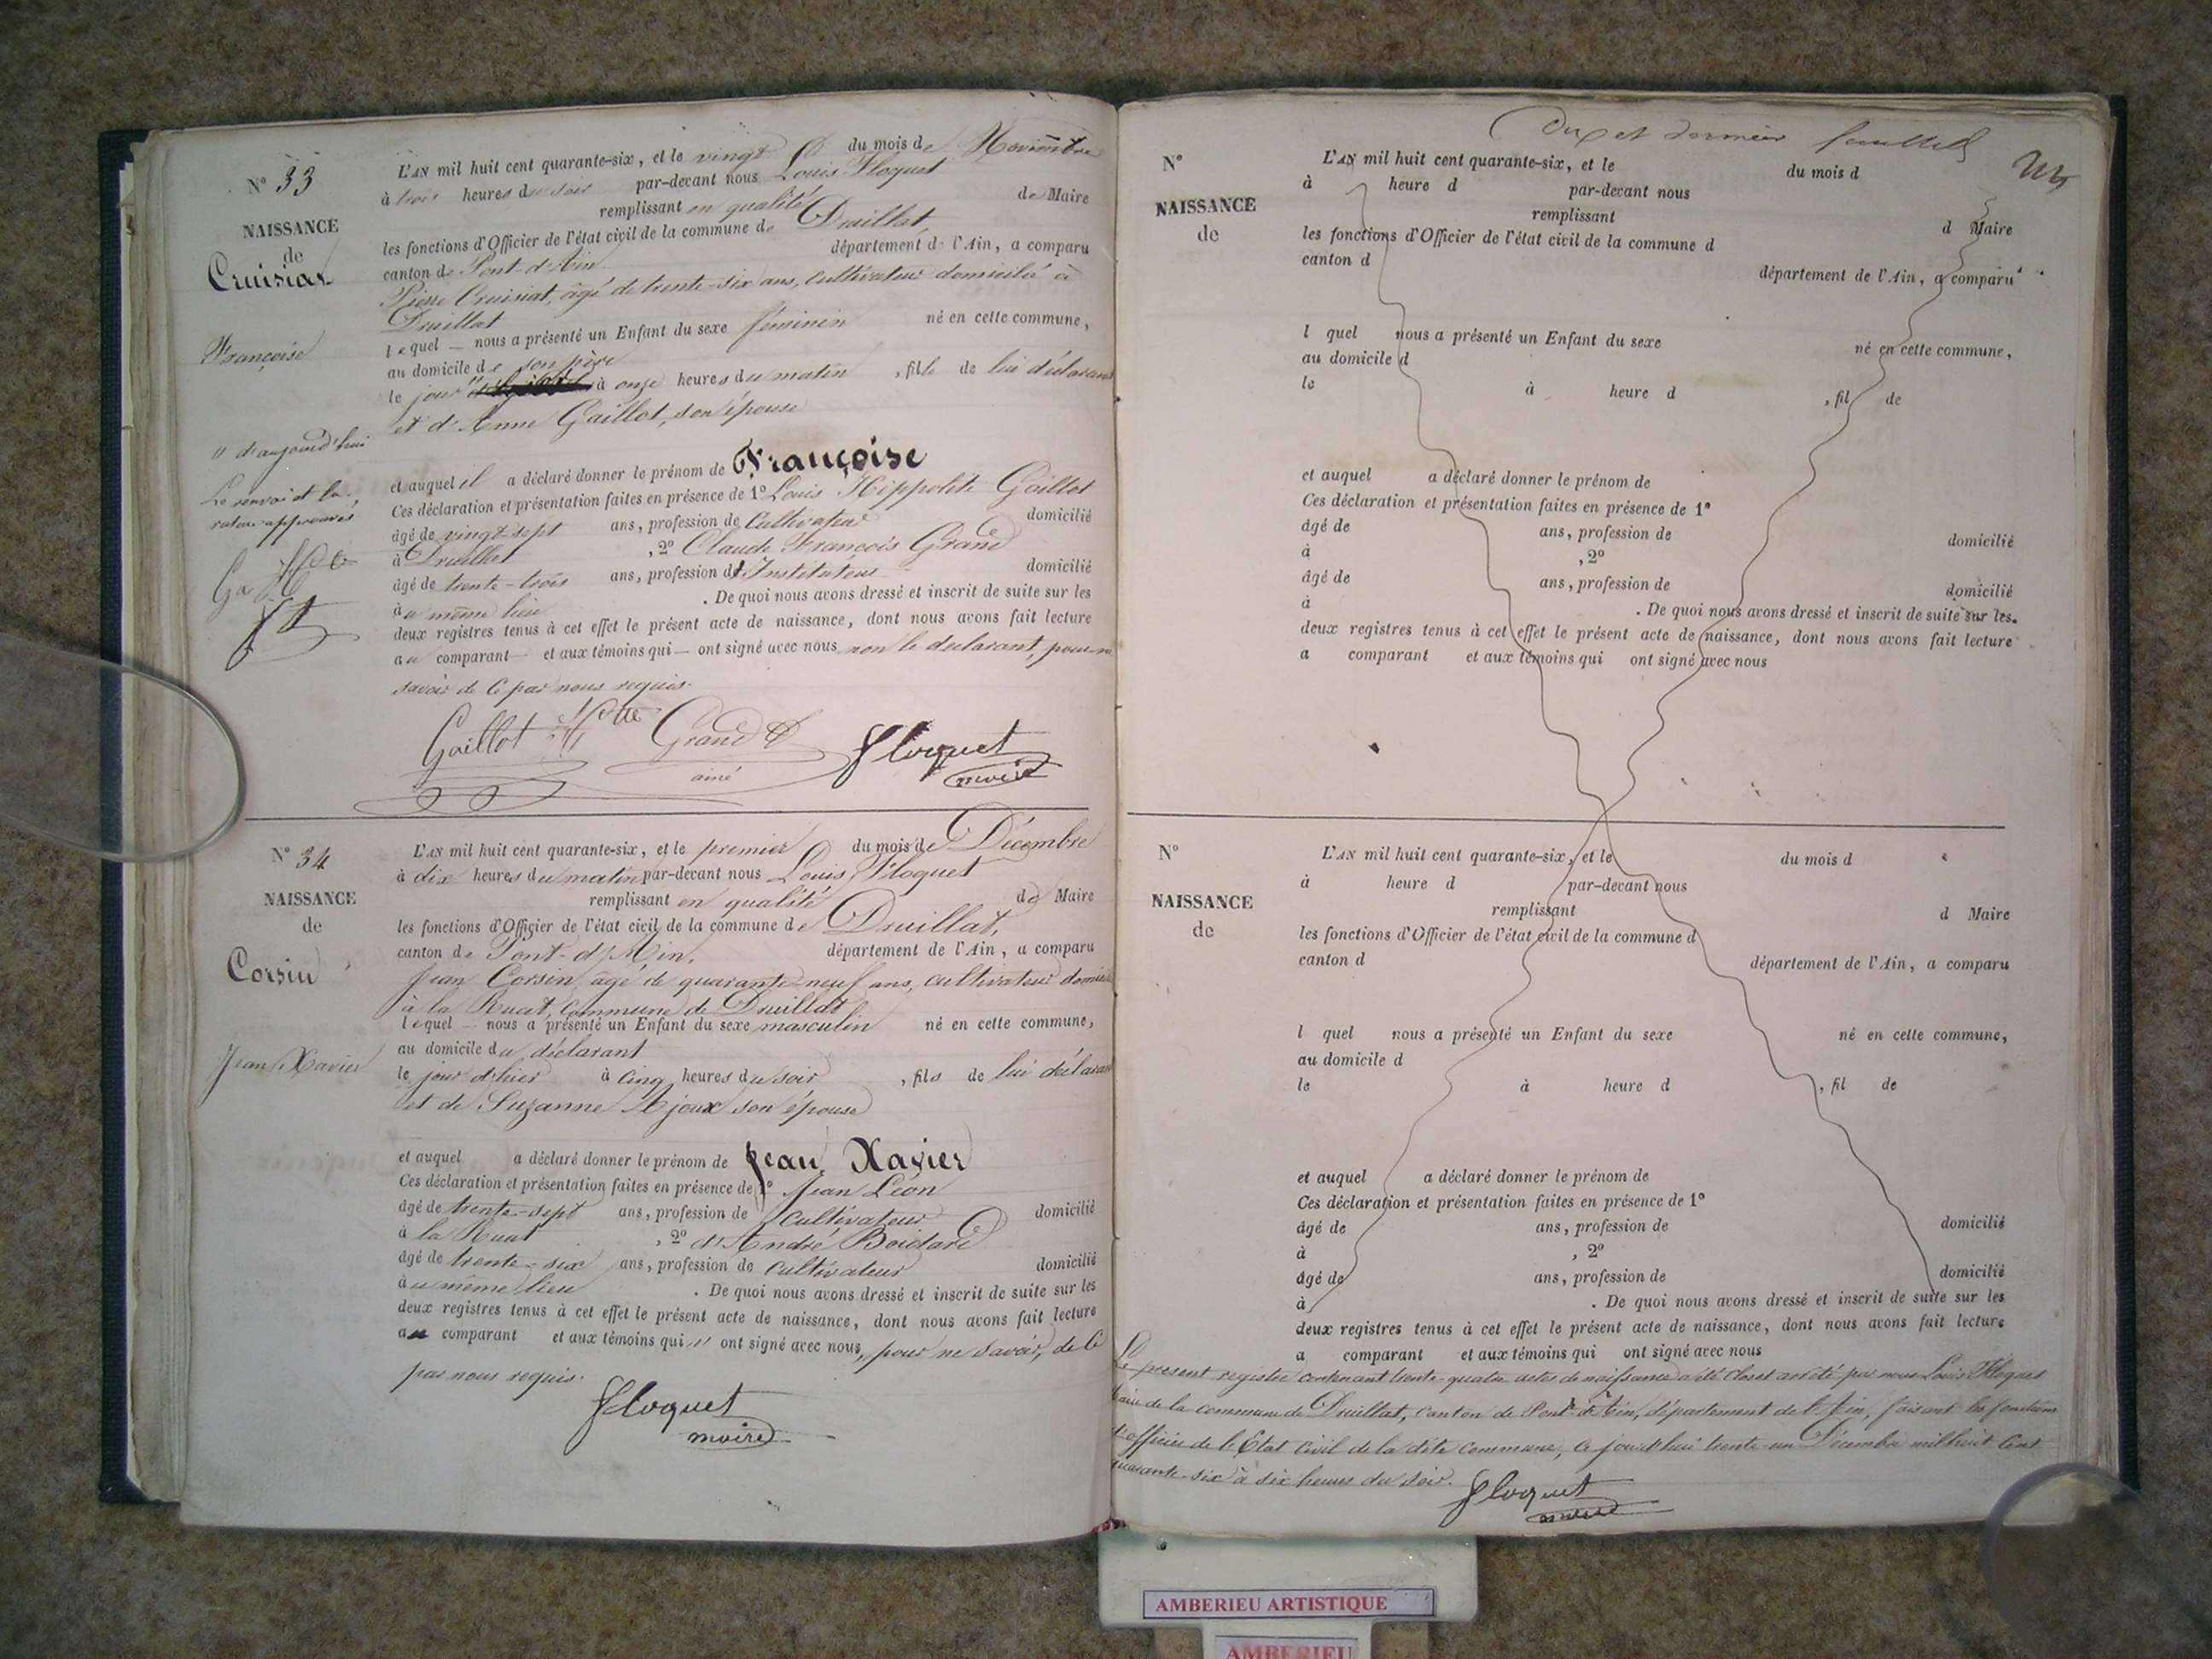 N° 33
NAISSANCE
de
Cruisiat
Françoise
" d'aujourd'hui
Le renvoi et la
rature approuvés
L'AN mil huit cent quarante-six, et le vingt du mois de Novembre
à trois heures du soir par-devant nous Louis Floquet
remplissant en qualité de Maire
les fonctions d'Officier de l'état civil de la commune de Druillat,
canton de Pont-d'Ain département de l'Ain, a comparu
Pierre Cruisiat, âgé de trente-six ans, cultivateur domicilié à
Druillat
lequel — nous a présenté un Enfant du sexe féminin né en cette commune,
au domicile de son père
le jour " à onze heures du matin , fille de lui déclarant
et d'Anne Gaillot, son épouse
et auquel il a déclaré donner le prénom de Françoise
Ces déclaration et présentation faites en présence de 1° Louis Hippolite Gaillot
âgé de vingt-sept ans, profession de Cultivateur domicilié
à Druillat , 2° Claude François Grand
âgé de trente-trois ans, profession d'Instituteur domicilié
au même lieu . De quoi nous avons dressé et inscrit de suite sur les
deux registres tenus à cet effet le présent acte de naissance, dont nous avons fait lecture
au comparant — et aux témoins qui — ont signé avec nous non le déclarant, pour ne
savoir de ce par nous requis.
Gaillot Hte Grand
ainé
Floquet
maire
N° 34
NAISSANCE
de
Corsin
Jean Xavier
L'AN mil huit cent quarante-six, et le premier du mois de Décembre
à dix heures du matin par-devant nous Louis Floquet
remplissant en qualité de Maire
les fonctions d'Officier de l'état civil de la commune de Druillat,
canton de Pont-d'Ain, département de l'Ain, a comparu
Jean Corsin, âgé de quarante-neuf ans, cultivateur
à la Ruat, commune de Druillat
lequel — nous a présenté un Enfant du sexe masculin né en cette commune,
au domicile du déclarant
le jour d'hier à cinq heures du soir , fils de lui déclarant
et de Suzanne Ajoux son épouse
et auquel a déclaré donner le prénom de Jean Xavier
Ces déclaration et présentation faites en présence de 1° Jean Léon
âgé de trente-sept ans, profession de cultivateur domicilié
à la Ruat , 2° d'André
âgé de trente-six ans, profession de cultivateur domicilié
au même lieu . De quoi nous avons dressé et inscrit de suite sur les
deux registres tenus à cet effet le présent acte de naissance, dont nous avons fait lecture
au comparant et aux témoins qui " ont signé avec nous, pour ne savoir, de ce
par nous requis.
Floquet
maire
et dernier feuillet
N°
NAISSANCE
de
L'AN mil huit cent quarante-six, et le du mois d
à heure d par-devant nous
remplissant d Maire
les fonctions d'Officier de l'état civil de la commune d
canton d département de l'Ain, a comparu
l quel nous a présenté un Enfant du sexe né en cette commune,
au domicile d
le à heure d , fil de
et auquel a déclaré donner le prénom de
Ces déclaration et présentation faites en présence de 1°
âgé de ans, profession de domicilié
à , 2°
âgé de ans, profession de domicilié
à . De quoi nous avons dressé et inscrit de suite sur les
deux registres tenus à cet effet le présent acte de naissance, dont nous avons fait lecture
a comparant et aux témoins qui ont signé avec nous
N°
NAISSANCE
de
L'AN mil huit cent quarante-six, et le du mois d
à heure d par-devant nous
remplissant d Maire
les fonctions d'Officier de l'état civil de la commune d
canton d département de l'Ain, a comparu
l quel nous a présenté un Enfant du sexe né en cette commune,
au domicile d
le à heure d , fil de
et auquel a déclaré donner le prénom de
Ces déclaration et présentation faites en présence de 1°
âgé de ans, profession de domicilié
à , 2°
âgé de ans, profession de domicilié
à . De quoi nous avons dressé et inscrit de suite sur les
deux registres tenus à cet effet le présent acte de naissance, dont nous avons fait lecture
a comparant et aux témoins qui ont signé avec nous
Le présent registre contenant trente-quatre actes de naissance a été clos et arrêté par nous Louis Floquet
Maire de la commune de Druillat, canton de Pont-d'Ain, département de l'Ain, faisant les fonctions
d'officier de l'Etat Civil de la dite commune, ce jourd'hui trente-un Décembre mil huit cent
quarante-six à six heures du soir.
Floquet
maire
AMBERIEU ARTISTIQUE
AMBERIEU